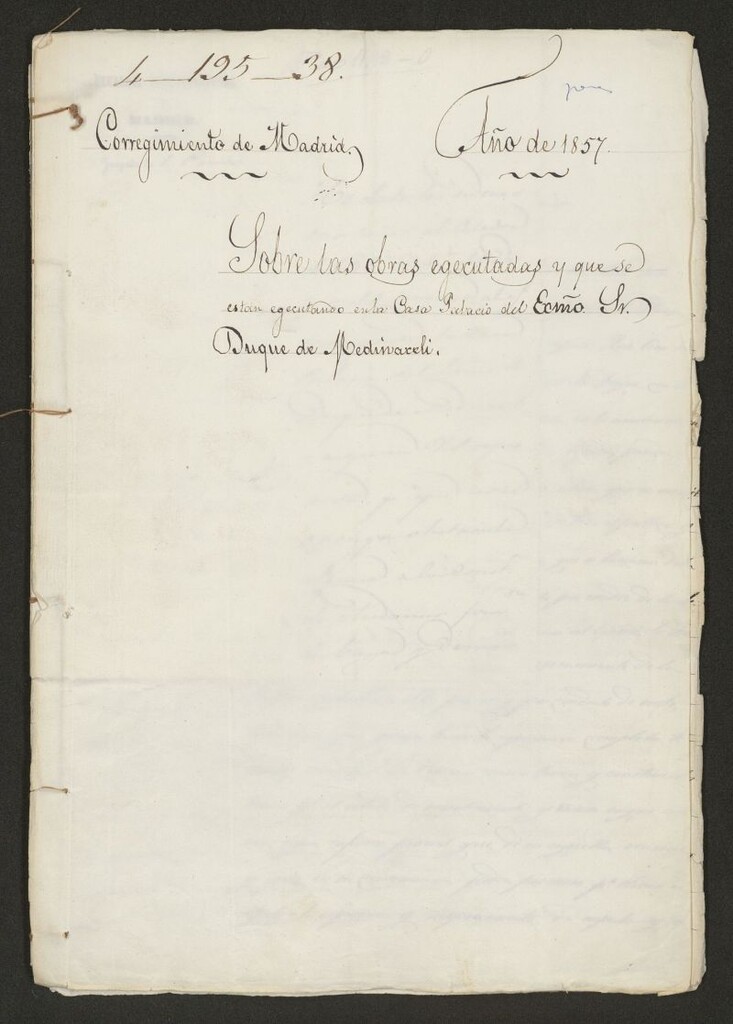 4—195—38.
Corregimiento de Madrid.
Año de 1857.
Sobre las obras egecutadas y que se
estan egecutando en la Casa Palacio del Ecmõ. Sr.
Duque de Medinaceli.